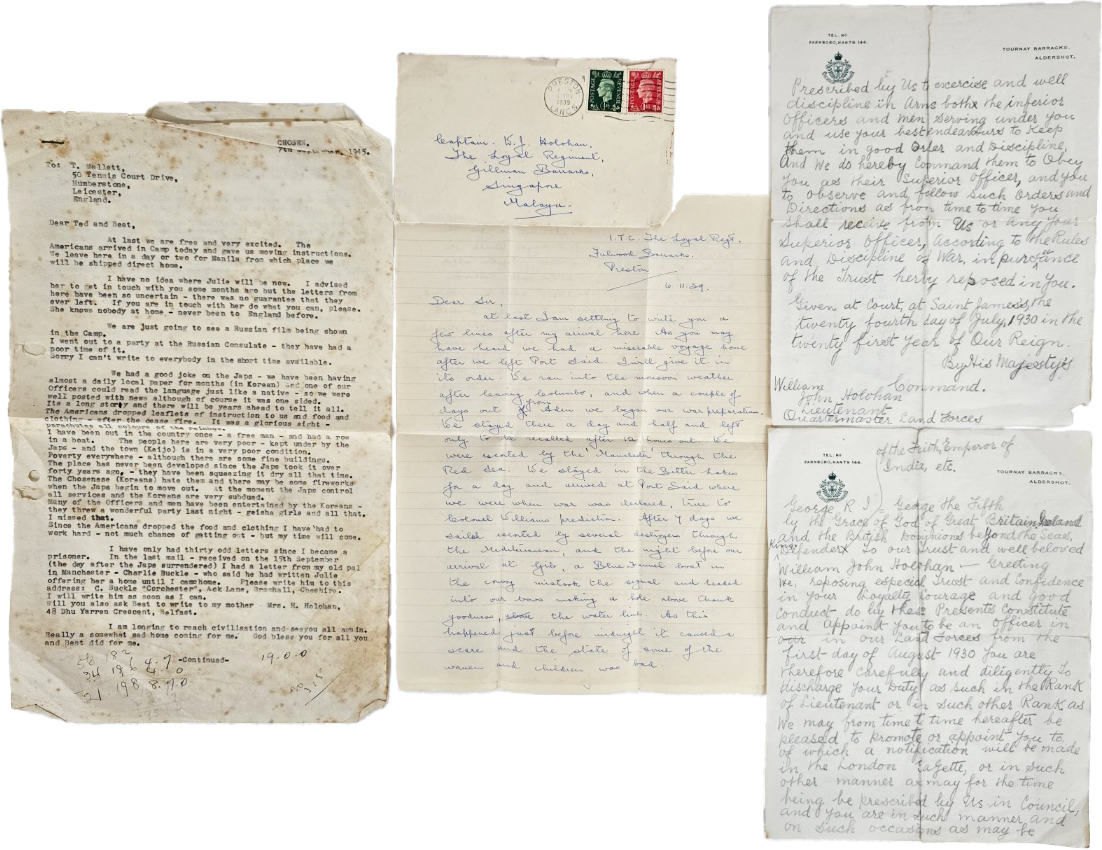 CHOSEN.
7th September, 1945.
To: T. Mellett,
50 Tennis Court Drive,
Humberstone,
Leicester,
England.
Dear Ted and Beat,
At last we are free and very excited. The
Americans arrived in Camp today and gave us moving instructions.
We leave here in a day or two for Manila from which place we
will be shipped direct home.
I have no idea where Julie will be now. I advised
her to get in touch with you some months ago but the letters from
here have been so uncertain - there was no guarantee that they
ever left. If you are in touch with her do what you can, please.
She knows nobody at home - never been to England before.
We are just going to see a Russian film being shown
in the Camp.
I went out to a party at the Russian Consulate - they have had a
poor time of it.
Sorry I can't write to everybody in the short time available.
We had a good joke on the Japs - we have been having
almost a daily local paper for months (in Korean) and one of our
Officers could read the language just like a native - so we were
well posted with news although of course it was one sided.
Its a long story and there will be years ahead to tell it all.
The Americans dropped leaflets of instruction to us and food and
clothing - after the cease fire. It was a glorious sight -
parachutes all colours of the rainbow.
I have been out in the country once - a free man - and had a row
in a boat. The people here are very poor - kept under by the
Japs - and the town (Keijo) is in a very poor condition.
Poverty everywhere - although there are some fine buildings.
The place has never been developed since the Japs took it over
forty years ago, - they have been squeezing it dry all that time.
The Chosenese (Koreans) hate them and there may be some fireworks
when the Japs begin to move out. At the moment the Japs control
all services and the Koreans are very subdued.
Many of the Officers and men have been entertained by the Koreans -
they threw a wonderful party last night - geisha girls and all that.
I missed that.
Since the Americans dropped the food and clothing I have had to
work hard - not much chance of getting out - but my time will come.
I have only had thirty odd letters since I became a
prisoner. In the last mail - received on the 19th September
(the day after the Japs surrendered) I had a letter from my old pal
in Manchester - Charlie Buckle - who said he had written Julie
offering her a home until I camehome. Please write him to this
address: C. Buckle "Corchester", Ack Lane, Bramhall, Cheshire.
I will write him as soon as I can.
Will you also ask Beat to write to my mother - Mrs. H. Holohan,
48 Dhu Varren Crescent, Belfast.
I am longing to reach civilisation and seeyou all again.
Really a somewhat sad home coming for me. God bless you for all you
and Beat did for me.
-Continued-
19.0.0
198
PRESTON
1939
LANCS
POSTAGE REVENUE
POSTAGE REVENUE
Captain W.J. Holohan,
The Loyal Regiment,
Gillman Barracks,
Singapore
Malaya.
I.T.C. The Loyal Regt,
Fulwood Barracks.
Preston
6.11.39.
Dear Sir,
at last I am settling to write you a
few lines after my arrival here. As you may
have heard we had a miserable voyage home
after we left Port Said. I will give it in
its order. We ran into the monsoon weather
after leaving Colombo, and when a couple of
days out from Aden we began our war preparation.
We stayed there a day and half and left
only to be recalled after 12 hours out. We
were escorted by the through the
Red Sea. We stayed in the Bitter Lakes
for a day and arrived at Port Said where
we were when war was declared, true to
Colonel Williams prediction. After 7 days we
sailed escorted by several destroyers through
the Mediterranean, and the night before our
arrival at Gib, a Blue Funnel boat in
the convoy mistook the signal and crashed
into our bows making a hole above thank
goodness, the water line. As this
happened just before midnight it caused a
scare and the state of some of the
women and children was bad
TEL. NO
FARNBORO, HANTS 166.
TOURNAY BARRACKS,
ALDERSHOT.
Prescribed by Us to exercise and well
discipline in Arms both the inferior
Officers and men serving under you
and use your best endeavours to Keep
them in good Order and Discipline,
And We do hereby Command them to Obey
You as their Superior Officer, and you
to Observe and follow Such Orders and
Directions as from time to time you
shall receive from Us or any Your
Superior Officer, According to the Rules
and Discipline of War, in pursuance
of the Trust herby reposed in You.
Given, at Court, at Saint James's the
twenty fourth day of July, 1930 in the
twenty first Year of Our Reign.
By His Majesty's
Command.
William
John Holohan
Lieutenant
Quartermaster Land Forces
of the Faith, Emperor of
India, etc.
TEL. NO
FARNBORO, HANTS 166.
TOURNAY BARRACKS,
ALDERSHOT.
George R.I. George the Fifth
by the Grace of God of Great Britain Ireland
and the British Dominions beyond the Seas,
King Defender To our Trust and well beloved
William John Holohan - Greeting
We, reposing especial Trust and Confidence
in Your Loyalty Courage and good
Conduct do by these Presents Constitute
and Appoint You to be an Officer in
our in our Land Forces from the
first day of August 1930 You are
therefore Carefully and diligently to
discharge Your Duty as such in the Rank
of Lieutenant or in such other Rank as
We may from time to time hereafter be
pleased to promote or appoint You to
of which a notification will be made
in the London Gazette, or in such
other manner as may for the time
being be prescribed by Us in Council,
and You are in such manner and
on such occasions as may be